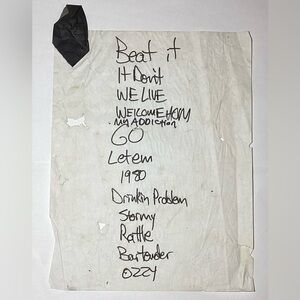 Beat it
It Don't
WE LIVE
WELCOME HOM
. MY ADDICTION
GO
Letem
1980
Drinkin Problem
Stormy
Rattle
Bartender
OZZY